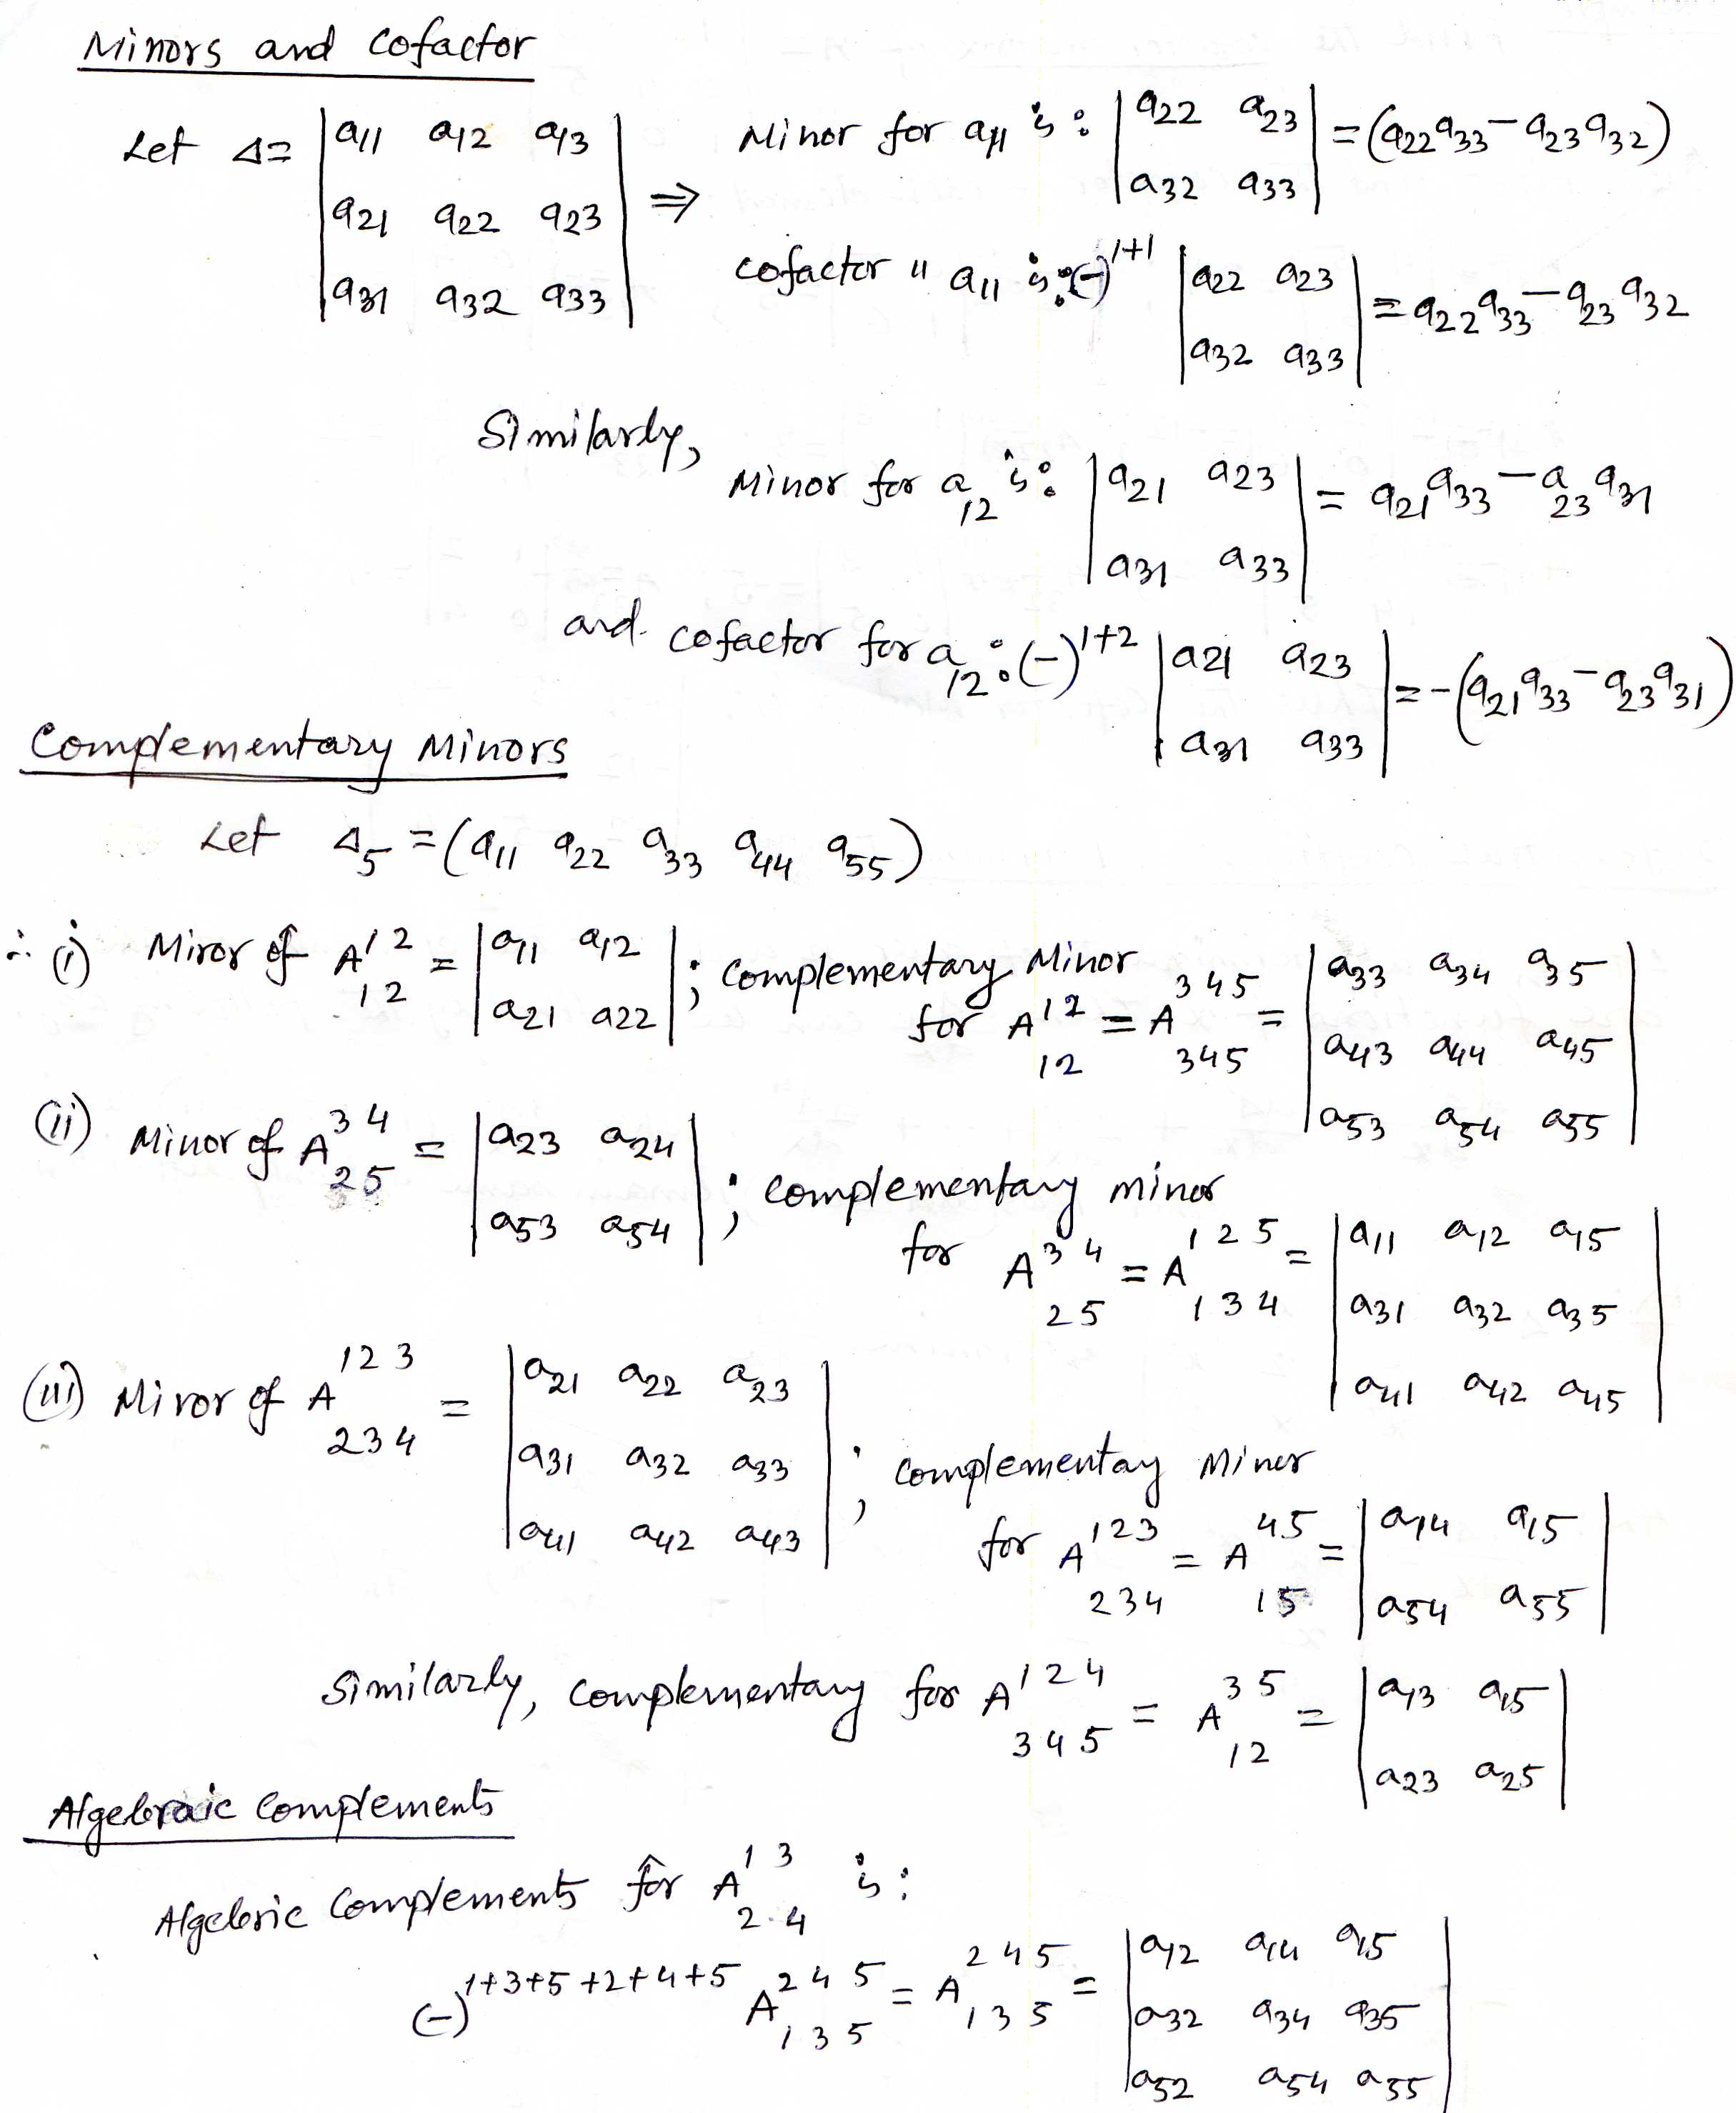 Minors and Cofactor
Let Δ = | a11 a12 a13 | a21 a22 a23 | a31 a32 a33 | ⇒
Minor for a11 is : | a22 a23 | a32 a33 | = (a22 a33 - a23 a32)
cofactor " a11 is : (-)^1+1 | a22 a23 | a32 a33 | = a22 a33 - a23 a32
Similarly,
Minor for a12 is : | a21 a23 | a31 a33 | = a21 a33 - a23 a31
and cofactor for a12 : (-)^1+2 | a21 a23 | a31 a33 | = -(a21 a33 - a23 a31)
Complementary Minors
Let Δ5 = (a11 a22 a33 a44 a55)
∴ (i) Minor of A^12_12 = | a11 a12 | a21 a22 | ; Complementary Minor
for A^12_12 = A^345_345 = | a33 a34 a35 | a43 a44 a45 | a53 a54 a55 |
(ii) Minor of A^34_25 = | a23 a24 | a53 a54 | ; complementary minor
for A^34_25 = A^125_134 = | a11 a12 a15 | a31 a32 a35 | a41 a42 a45 |
(iii) Minor of A^123_234 = | a21 a22 a23 | a31 a32 a33 | a41 a42 a43 | ; complementay Minor
for A^123_234 = A^45_15 = | a14 a15 | a54 a55 |
Similarly, complementary for A^124_345 = A^35_12 = | a13 a15 | a23 a25 |
Algebraic Complements
Algebric Complements for A^13_2.4 is :
(-)^1+3+5+2+4+5 A^245_135 = A^245_135 = | a12 a14 a15 | a32 a34 a35 | a52 a54 a55 |